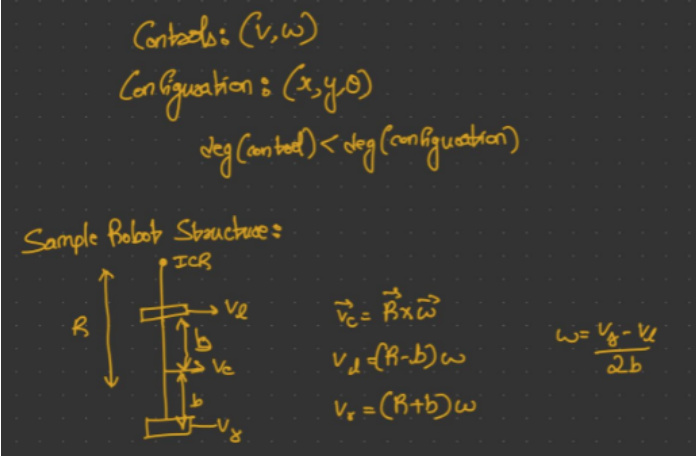 Controls: (v, ω)
Configuration: (x, y, θ)
deg(control) < deg(configuration)
Sample Robot Structure:
ICR
R
V_l
b
V_c
b
V_r
\vec{V_c} = \vec{R} × \vec{ω}
V_l = (R-b) ω
V_r = (R+b) ω
ω = \frac{V_r - V_l}{2b}